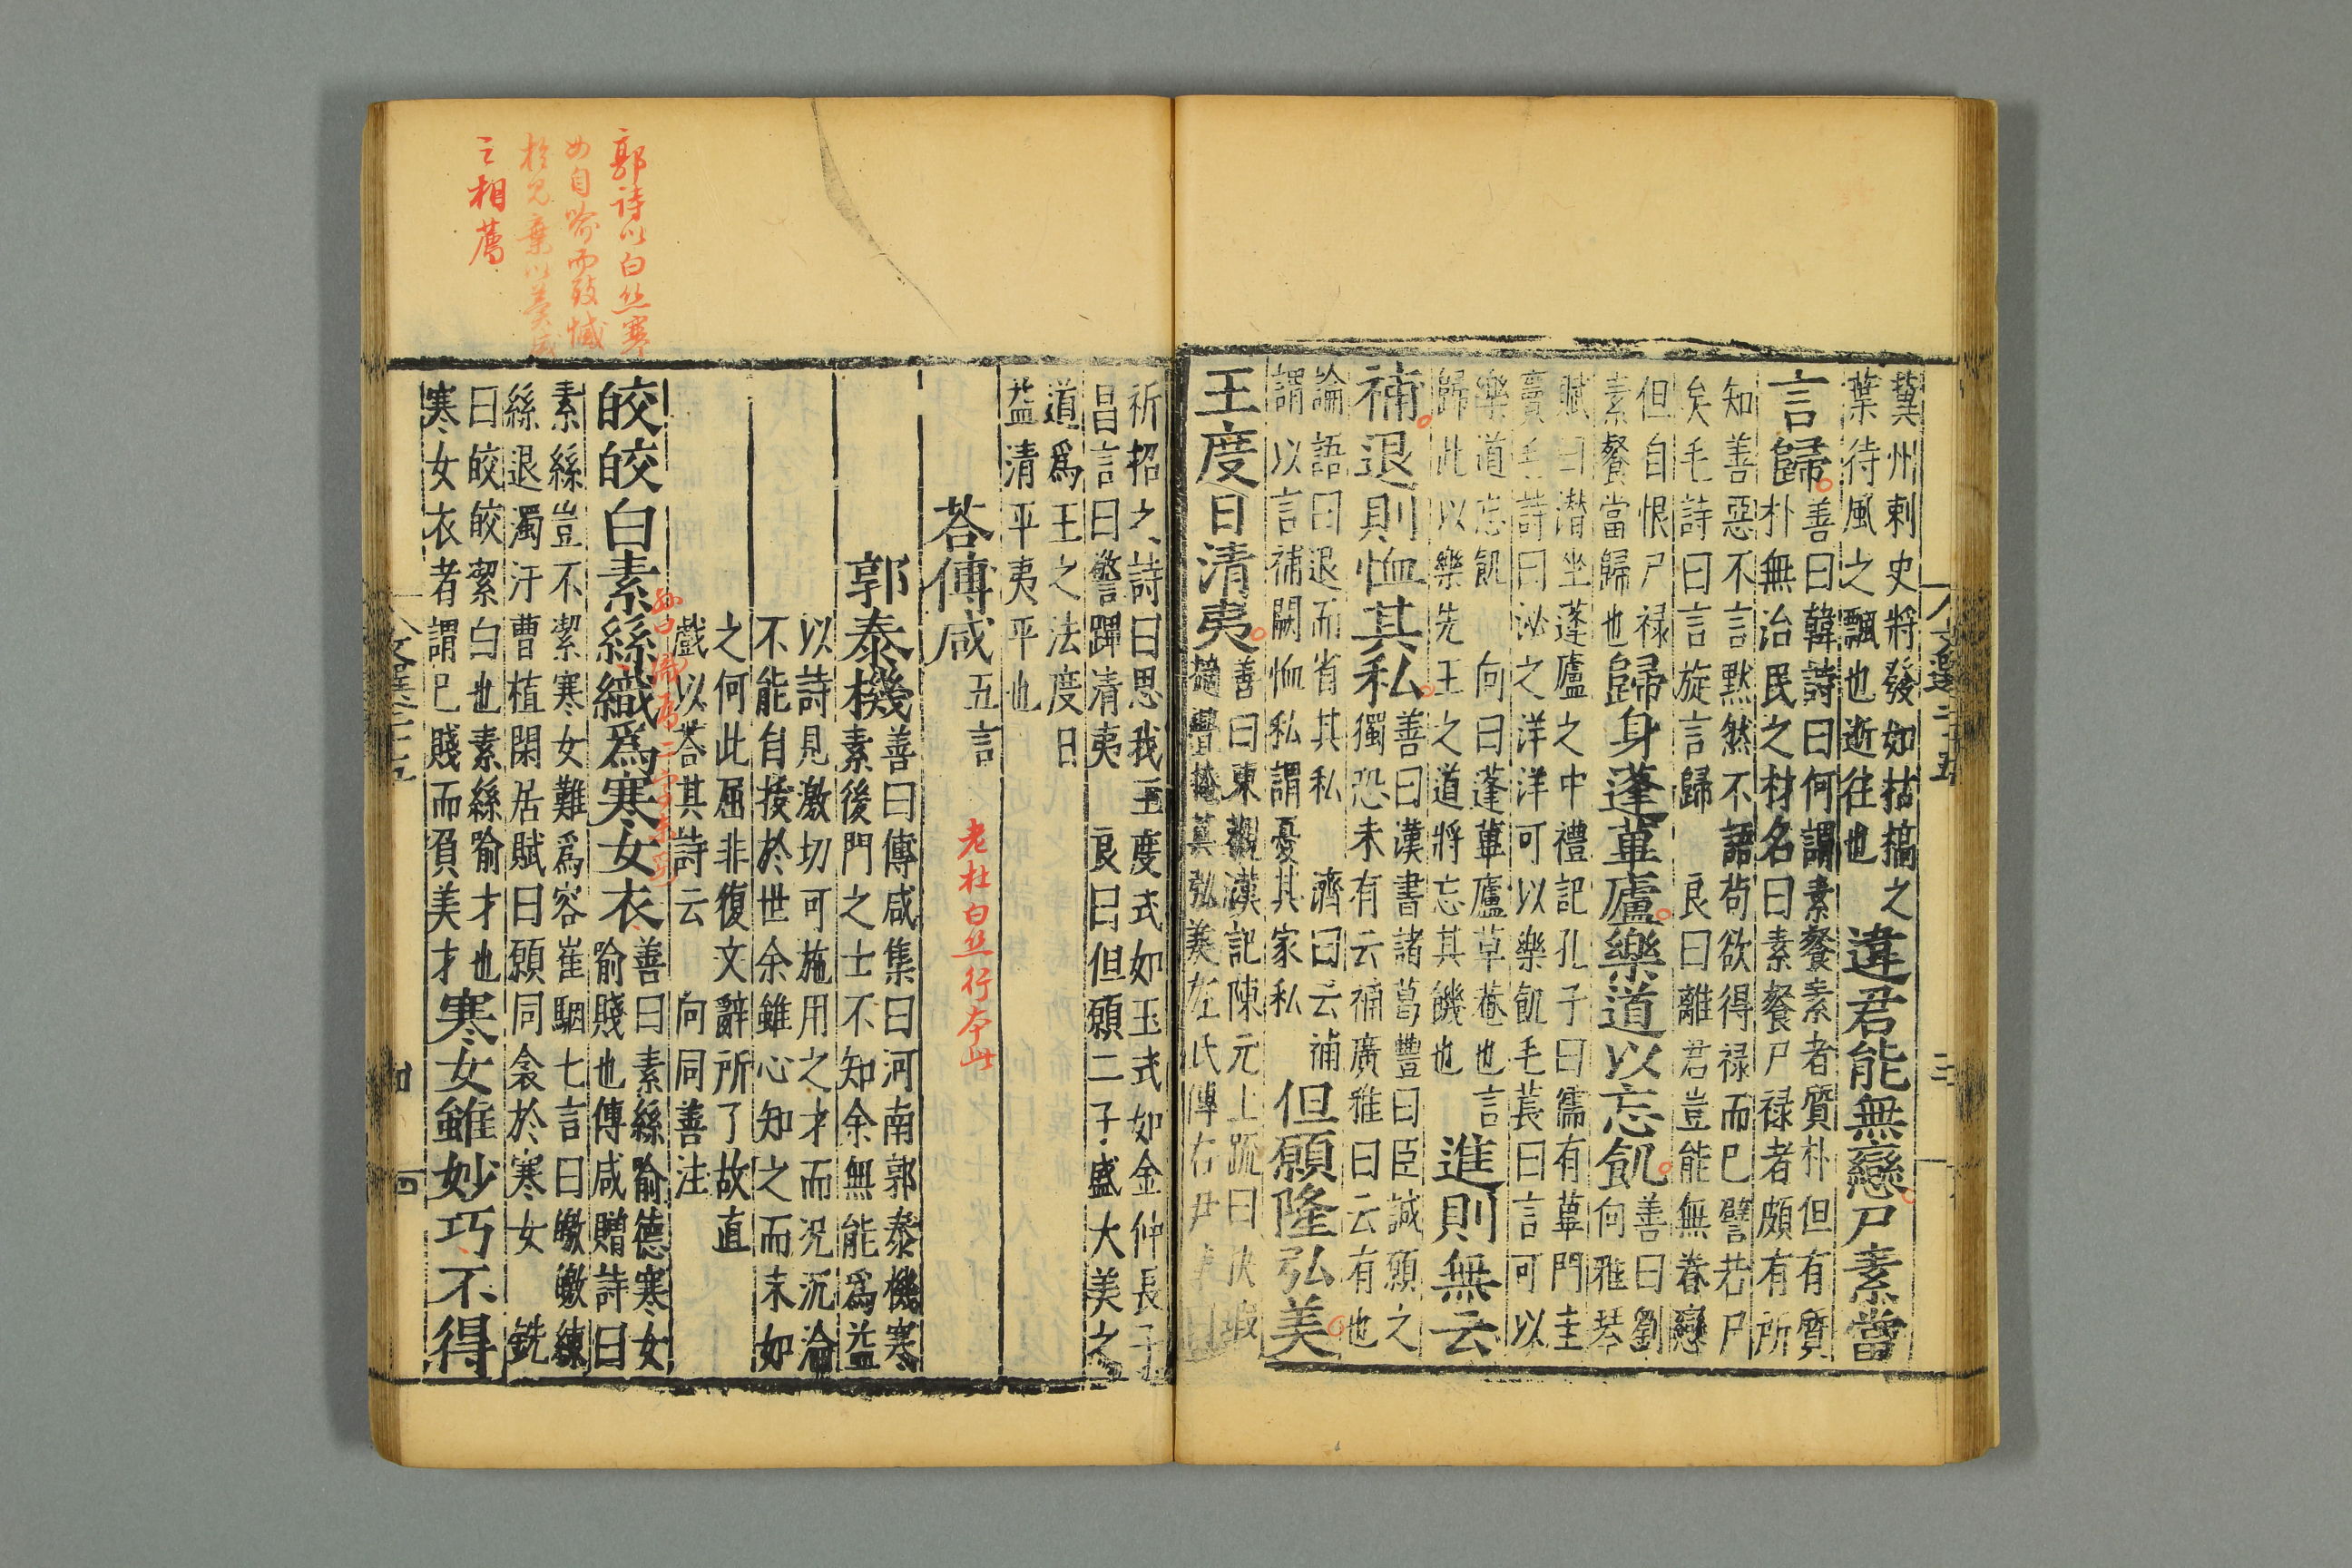 冀州刺史將發如枯槁之
葉待風之飄也逝往也
違君能無戀尸素當
言歸
善曰韓詩曰何謂素餐素者質朴但有質
朴無治民之材名曰素餐尸祿者頗有所
知善惡不言默然不語苟欲得祿而已譬若尸
矣毛詩曰言旋言歸 良曰離君豈能無眷戀
但自恨尸祿
素餐當歸也
歸身蓬蓽廬樂道以忘飢
善曰劉
向雅琴
賦曰潛坐蓬廬之中禮記孔子曰儒有蓽門圭
竇毛詩曰泌之洋洋可以樂飢毛萇曰言可以
樂道忘飢 向曰蓬蓽廬草菴也言
歸此以樂先王之道將忘其饑也
進則無云
補退則恤其私
善曰漢書諸葛豐曰臣誠願之
獨恐未有云補廣雅曰云有也
論語曰退而省其私 濟曰云補
謂以言補闕恤私謂憂其家私
但願隆弘美
王度日清夷
善曰東觀漢記陳元上疏曰
左氏傳右尹
祈招之詩曰思我王度式如玉式如金仲長子
昌言曰警蹕清夷 良曰但願二子盛大美之
道爲王之法度日
益清平夷平也
荅傅咸 五言
老杜白絲行本此
郭泰機
善曰傅咸集曰河南郭泰機寒
素後門之士不知余無能爲益
以詩見激切可施用之才而況沉淪
不能自拔於世余雖心知之而末如
之何此屈非復文辭所了故直
戲以荅其詩云 向同善注
皎皎白素絲織爲寒女衣
善曰素絲喻德寒女
喻賤也傅咸贈詩曰
素絲豈不潔寒女難爲容崔駰七言曰皦皦練
絲退濁汙曹植閑居賦曰願同衾於寒女 銑
曰皎皎絜白也素絲喻才也
寒女衣者謂己賤而負美才
寒女雖妙巧不得
郭詩以白絲寒
女自喻而致憾
於見棄以美咸
之相薦
文選二十五
三
文選二十五
四